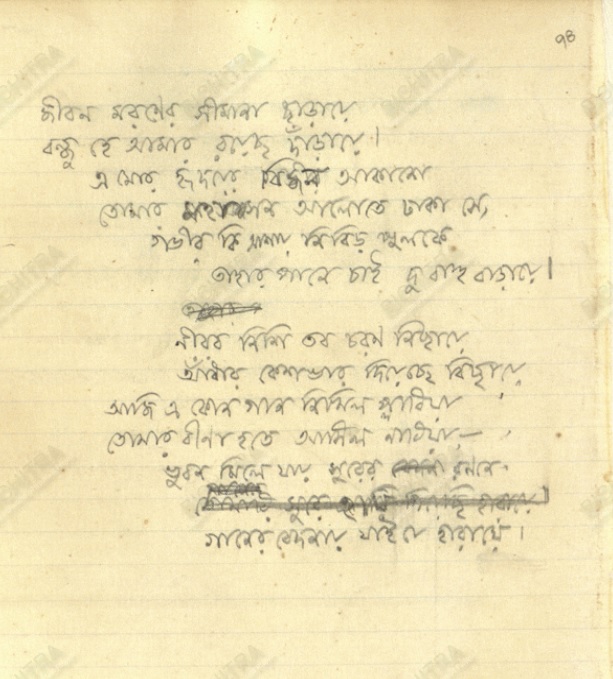 ৭৪
জীবন মরণের সীমানা ছাড়ায়ে
বন্ধু হে আমার রয়েছ দাঁড়ায়ে।
এ মোর হৃদয়ের বিজন আকাশে
তোমার মহাসন আলোতে ঢাকা সে,
গভীর কি আশায় নিবিড় পুলকে
তাহার পানে চাই দু বাহু বাড়ায়ে।
নীরব নিশি তব চরণ নিছায়ে
আঁধার কেশভার দিয়েছে বিছায়ে
আজি এ কোন গান নিখিল প্লাবিয়া
তোমার বীণা হতে আসিল নাবিয়া,—
ভুবন মিলে যায় সুরের রণনে
সুরে দিয়েছি হারায়ে
গানের বেদনায় যাই যে হারায়ে।